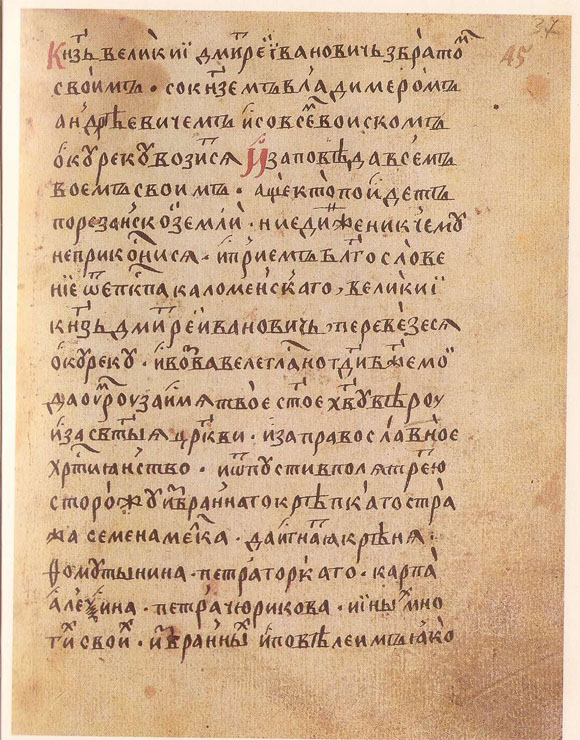 37
45
Кнзь великиї дмⷮреї івановичь з братоⷨ
своимъ · со кнземъ владимеромъ
андрѣевичемъ и со всеⷨ воискомъ
ѻку реку возисⷮя И заповѣда всемъ
воемъ своимъ · аще кто поидетъ
по резанскоⷤ земли · ни едиⷩ же ни к чему
не прикоⷩнися · и приемъ блгослове
ние ѿ епⷭкпа каломенскаго, великиї
кнзь дмⷮреи ивановичь, перевезеся
ѻку реку · и воⷥва велегла̑но г҃ди б҃же моⷤ
да оуⷨроу за имя твое с҃тое х҃ву вѣроу
и за св҃тыя цр҃кви · и за православное
хрⷭтиꙗнство · и ѿпустив поля трⷮею
сторожу изⷠранна го крѣпкаго стра
жа семена меⷧка · да игнаⷮꙗ крѣня ·
ѳомутынина · петра горкаго · карпа
алеѯина · петра чюрикова · и ины̑ мно
гиⷯ своиⷯ · изⷠранныⷯ и повѣле имъ ꙗко